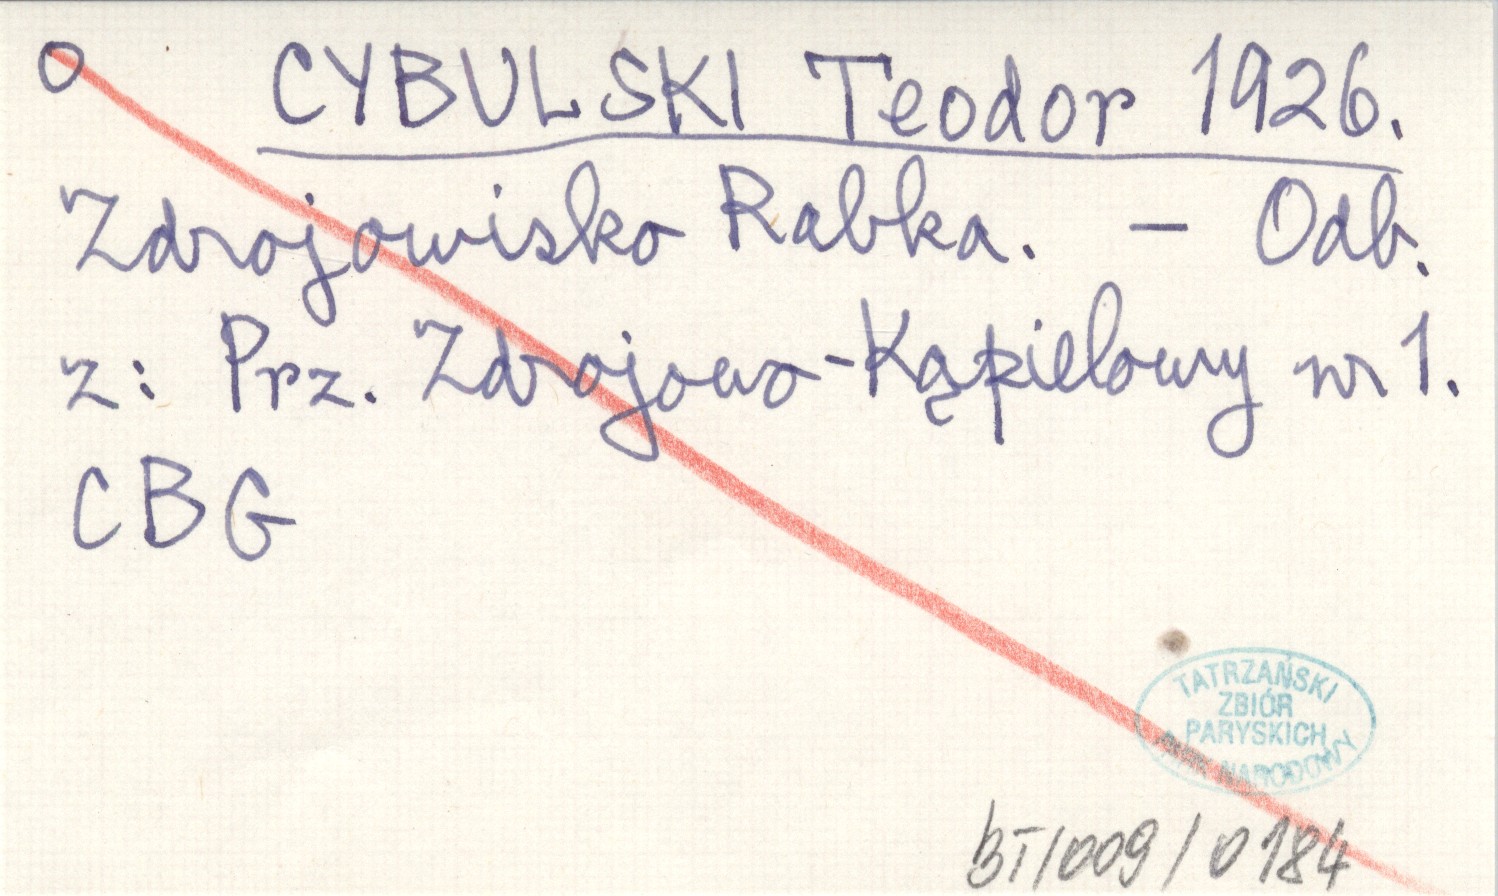 O CYBULSKI Teodor 1926.
Zdrojowisko Rabka. – Odb.
z: Prz. Zdrojowo-Kąpielowy nr 1.
CBG
TATRZAŃSKI
ZBIÓR
PARYSKICH
PARK NARODOWY
BT/009/0184